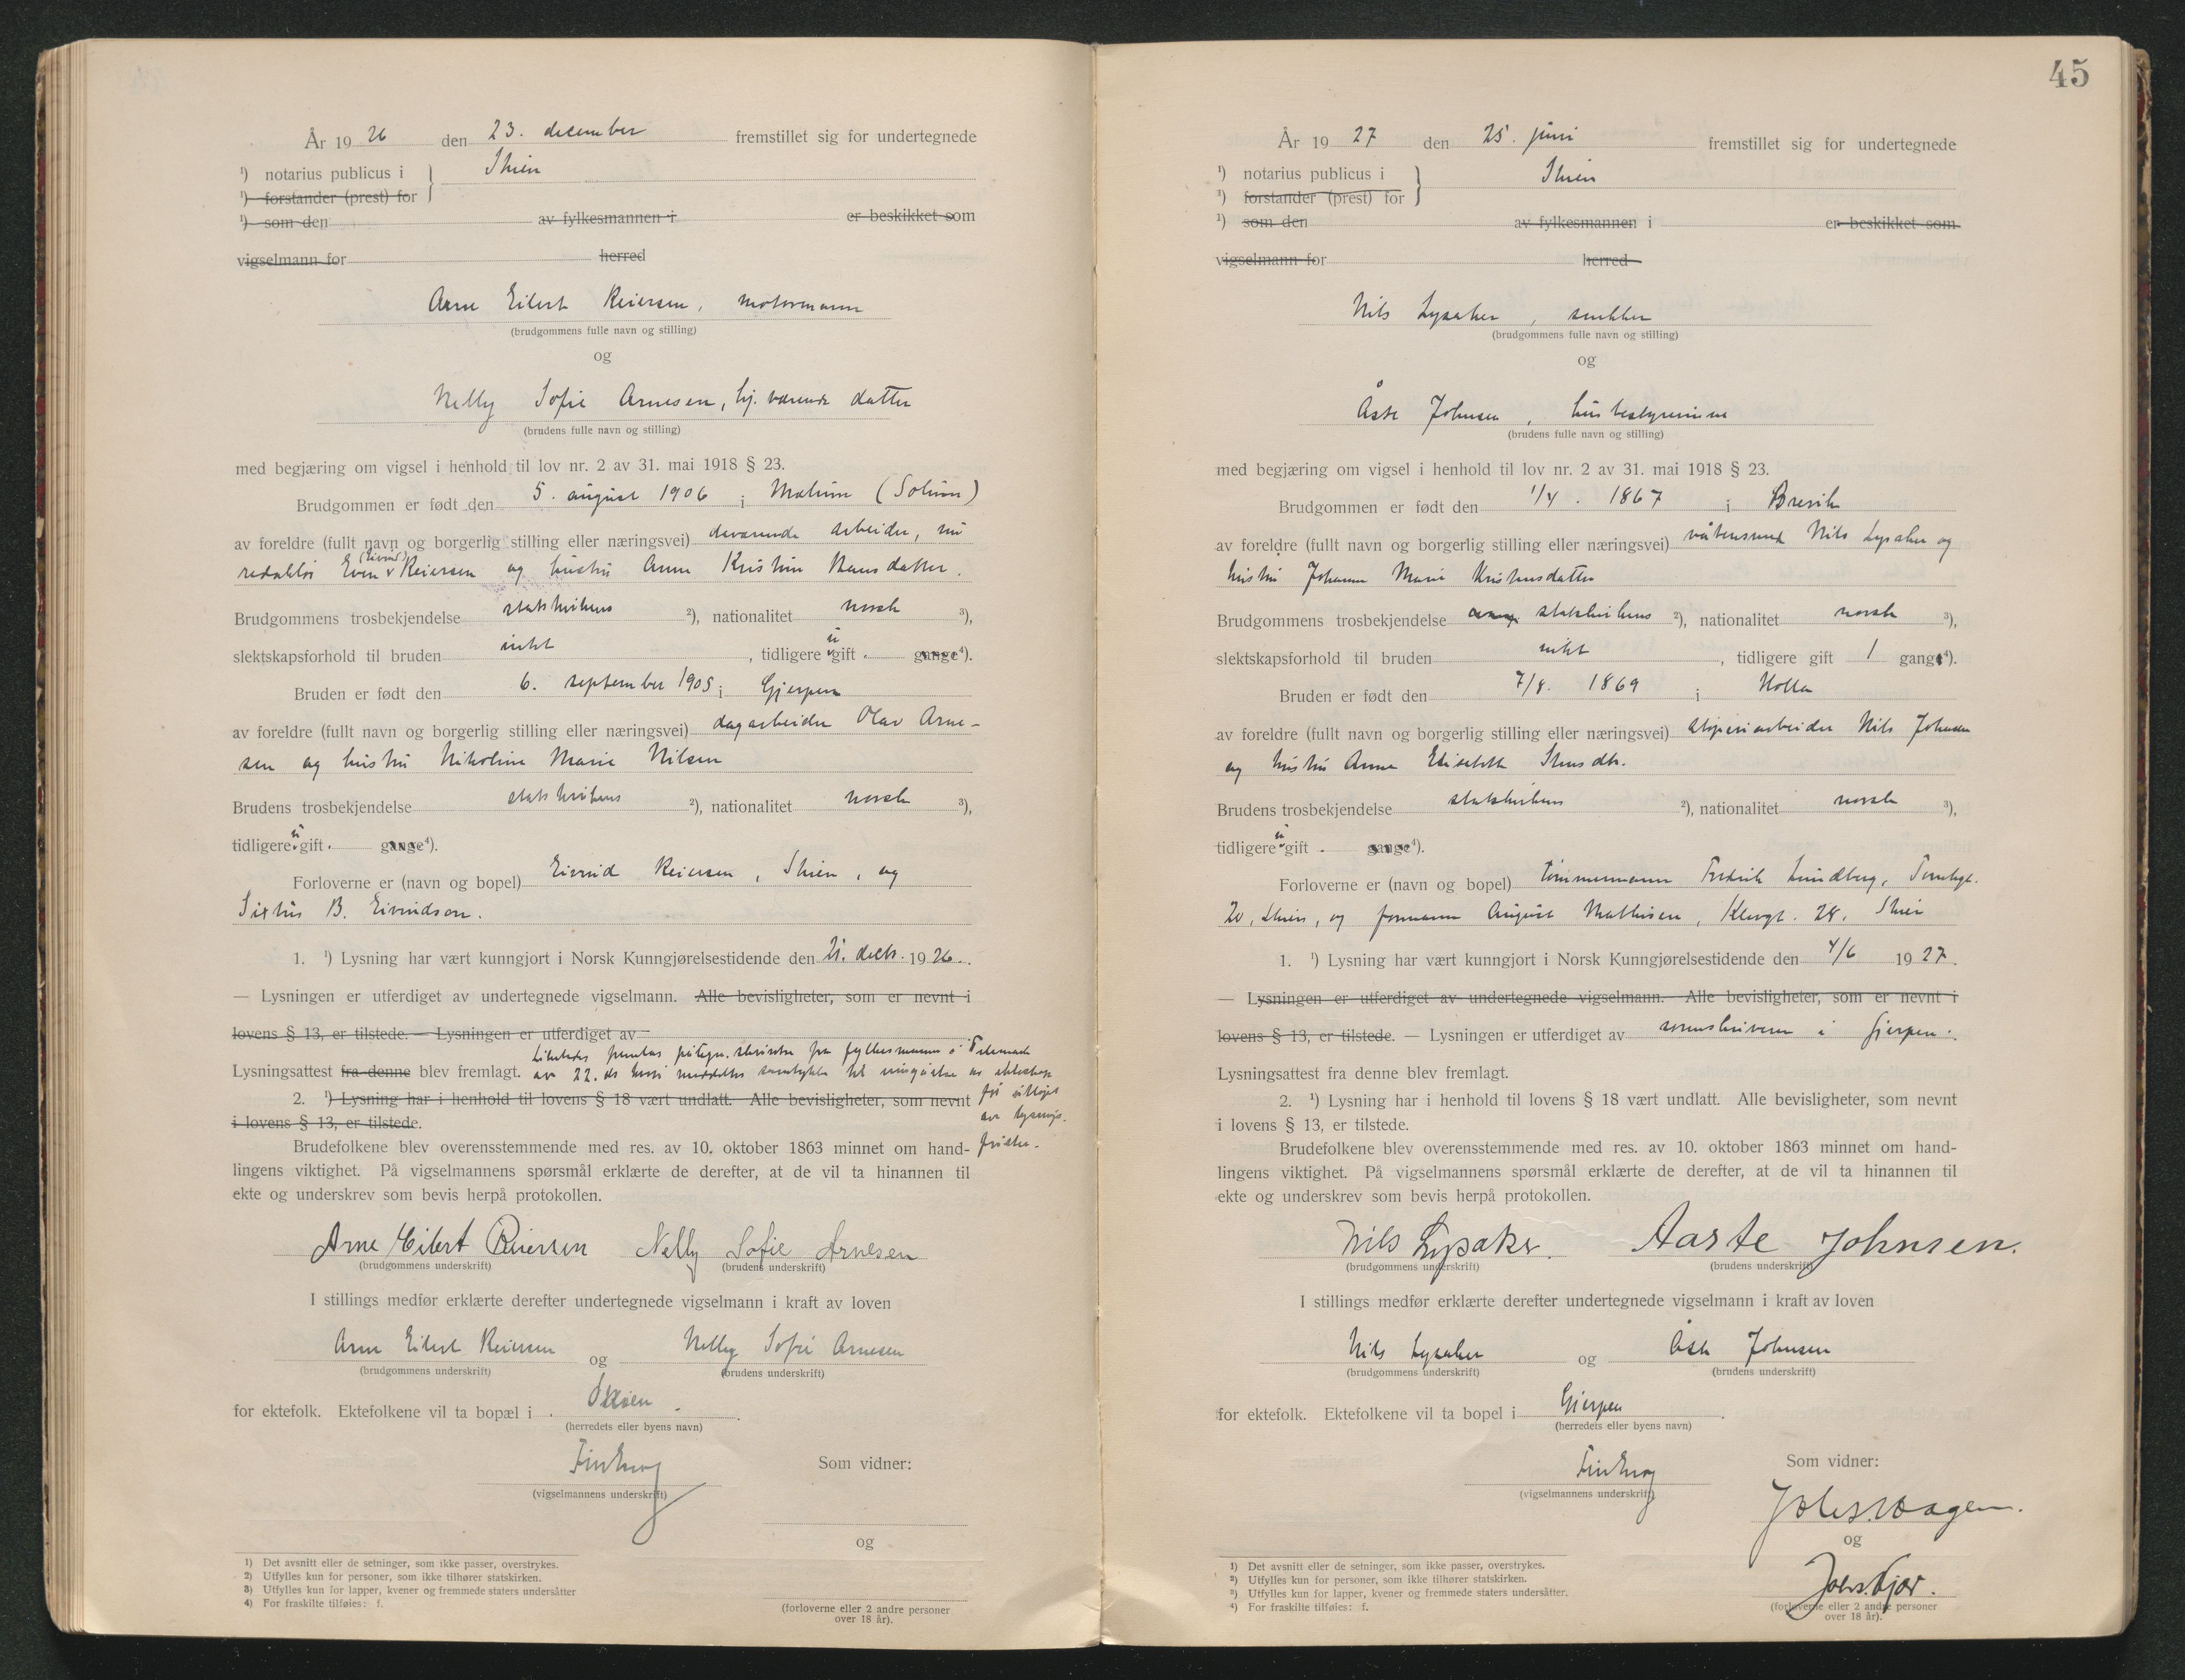 År 19 26 den 23. december fremstillet sig for undertegnede
¹) notarius publicus i } Skien
¹) forstander (prest) for
¹) som den av fylkesmannen i er beskikket som
vigselmann for herred
Arne Eilert Reiersen, motormann
(brudgommens fulle navn og stilling)
og
Nelly Sofie Arnesen, hj. værende datter
(brudens fulle navn og stilling)
med begjæring om vigsel i henhold til lov nr. 2 av 31. mai 1918 § 23.
Brudgommen er født den 5. august 1906 i Mælum (Solum)
av foreldre (fullt navn og borgerlig stilling eller næringsvei) daværende arbeider, nu
redaktør Even (Eivind) Reiersen og hustru Anne Kristine Hansdatter.
Brudgommens trosbekjendelse statskirkens ²), nationalitet norsk ³),
slektskapsforhold til bruden intet, tidligere u gift gange⁴).
Bruden er født den 6. september 1905 i Gjerpen
av foreldre (fullt navn og borgerlig stilling eller næringsvei) dagarbeider Olav Arne-
sen og hustru Nikoline Marie Nilsen
Brudens trosbekjendelse statskirkens ²), nationalitet norsk ³),
tidligere u gift gange⁴).
Forloverne er (navn og bopel) Eivind Reiersen, Skien, og
Sixtus B. Eivindson.
1. ¹) Lysning har vært kunngjort i Norsk Kunngjørelsestidende den 21. decbr. 1926.
— Lysningen er utferdiget av undertegnede vigselmann. Alle bevisligheter, som er nevnt i
lovens § 13, er tilstede. — Lysningen er utferdiget av
Likeledes fremlas påtegn. skrivelse fra fylkesmannen i Telemark
Lysningsattest fra denne blev fremlagt. av 22. ds hvori meddeltes samtykke til inngåelse av ekteskap
2. ¹) Lysning har i henhold til lovens § 18 vært undlatt. Alle bevisligheter, som nevnt før utløpet
i lovens § 13, er tilstede. av lysnings-
fristen.
Brudefolkene blev overensstemmende med res. av 10. oktober 1863 minnet om hand-
lingens viktighet. På vigselmannens spørsmål erklærte de derefter, at de vil ta hinannen til
ekte og underskrev som bevis herpå protokollen.
Arne Eilert Reiersen Nelly Sofie Arnesen
(brudgommens underskrift) (brudens underskrift)
I stillings medfør erklærte derefter undertegnede vigselmann i kraft av loven
Arne Eilert Reiersen og Nelly Sofie Arnesen
(brudgommens underskrift) (brudens underskrift)
for ektefolk. Ektefolkene vil ta bopæl i Skien.
(herredets eller byens navn)
Som vidner:
(vigselmannens underskrift)
og
1) Det avsnitt eller de setninger, som ikke passer, overstrykes.
2) Utfylles kun for personer, som ikke tilhører statskirken.
3) Utfylles kun for lapper, kvener og fremmede staters undersåtter
4) For fraskilte tilføies: f.
(forloverne eller 2 andre personer
over 18 år).
45
År 19 27 den 25. juni fremstillet sig for undertegnede
¹) notarius publicus i } Skien
¹) forstander (prest) for
¹) som den av fylkesmannen i er beskikket som
vigselmann for herred
Nils Lysaker, snekker
(brudgommens fulle navn og stilling)
og
Åste Johnsen, husbestyrerinne
(brudens fulle navn og stilling)
med begjæring om vigsel i henhold til lov nr. 2 av 31. mai 1918 § 23.
Brudgommen er født den 1/4. 1867 i Brevik
av foreldre (fullt navn og borgerlig stilling eller næringsvei) Nils Lysaker og
hustru Johanne Marie Kristensdatter
Brudgommens trosbekjendelse statskirkens ²), nationalitet norsk ³),
slektskapsforhold til bruden intet, tidligere gift 1 gang⁴).
Bruden er født den 7/8. 1869 i Holla
av foreldre (fullt navn og borgerlig stilling eller næringsvei) støperiarbeider Nils Johnsen
og hustru Anne Elisabeth
Brudens trosbekjendelse statskirkens ²), nationalitet norsk ³),
tidligere u gift gange⁴).
Forloverne er (navn og bopel) tømmermann Fredrik Lundberg,
20, Skien, og formann August Mathisen, Klevgt. 28, Skien
1. ¹) Lysning har vært kunngjort i Norsk Kunngjørelsestidende den 4/6 1927.
— Lysningen er utferdiget av undertegnede vigselmann. Alle bevisligheter, som er nevnt i
lovens § 13, er tilstede. — Lysningen er utferdiget av sorenskriveren i Gjerpen.
Lysningsattest fra denne blev fremlagt.
2. ¹) Lysning har i henhold til lovens § 18 vært undlatt. Alle bevisligheter, som nevnt
i lovens § 13, er tilstede.
Brudefolkene blev overensstemmende med res. av 10. oktober 1863 minnet om hand-
lingens viktighet. På vigselmannens spørsmål erklærte de derefter, at de vil ta hinannen til
ekte og underskrev som bevis herpå protokollen.
Nils Lysaker. Aaste Johnsen.
(brudgommens underskrift) (brudens underskrift)
I stillings medfør erklærte derefter undertegnede vigselmann i kraft av loven
Nils Lysaker og Åste Johnsen
(brudgommens underskrift) (brudens underskrift)
for ektefolk. Ektefolkene vil ta bopel i Gjerpen.
(herredets eller byens navn)
Som vidner:
(vigselmannens underskrift)
og
1) Det avsnitt eller de setninger, som ikke passer, overstrykes.
2) Utfylles kun for personer, som ikke tilhører statskirken.
3) Utfylles kun for lapper, kvener og fremmede staters undersåtter.
4) For fraskilte tilføies: f.
(forloverne eller 2 andre personer
over 18 år).